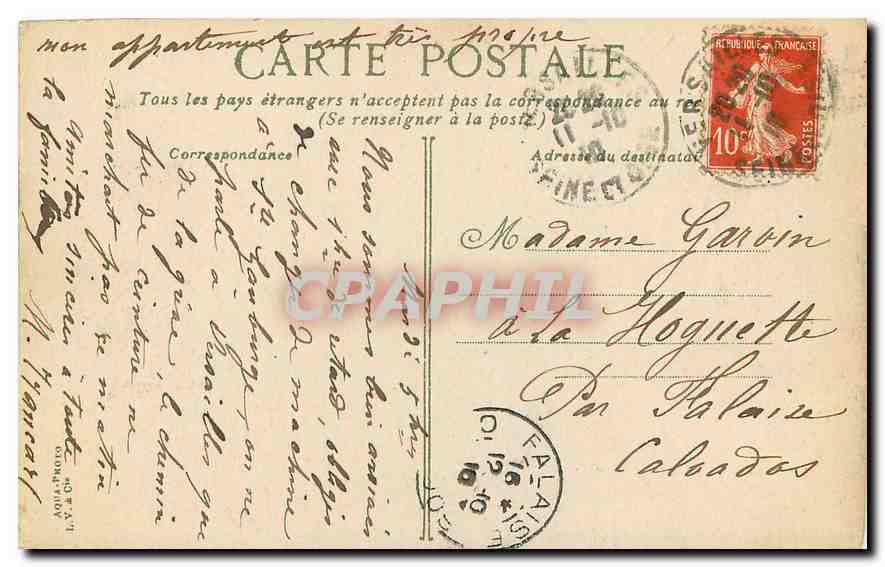 mon appartement est très propre
CARTE POSTALE
Tous les pays étrangers n'acceptent pas la correspondance au rec
(Se renseigner à la poste)
Correspondance
Adresse du destinatai
RÉPUBLIQUE FRANÇAISE
10c
POSTES
VERSAILLES
20-20
11-10
10
SEINE ET OISE
Madame Garvin
à La Hoguette
Par Falaise
Calvados
Mardi 5 hrs
Nous sommes bien arrivés
avec 1 hre de retard, obligés
de changer de machine
à Ste Gauburge, on ne
parle à Versailles que
de la grève, le chemin
fer de ceinture ne
marchait pas ce matin
Amitiés sincères à toute
la famille
FALAISE
16
12-10
10
CPAPHIL
AQUA-PHOTO
L. V. & Cie